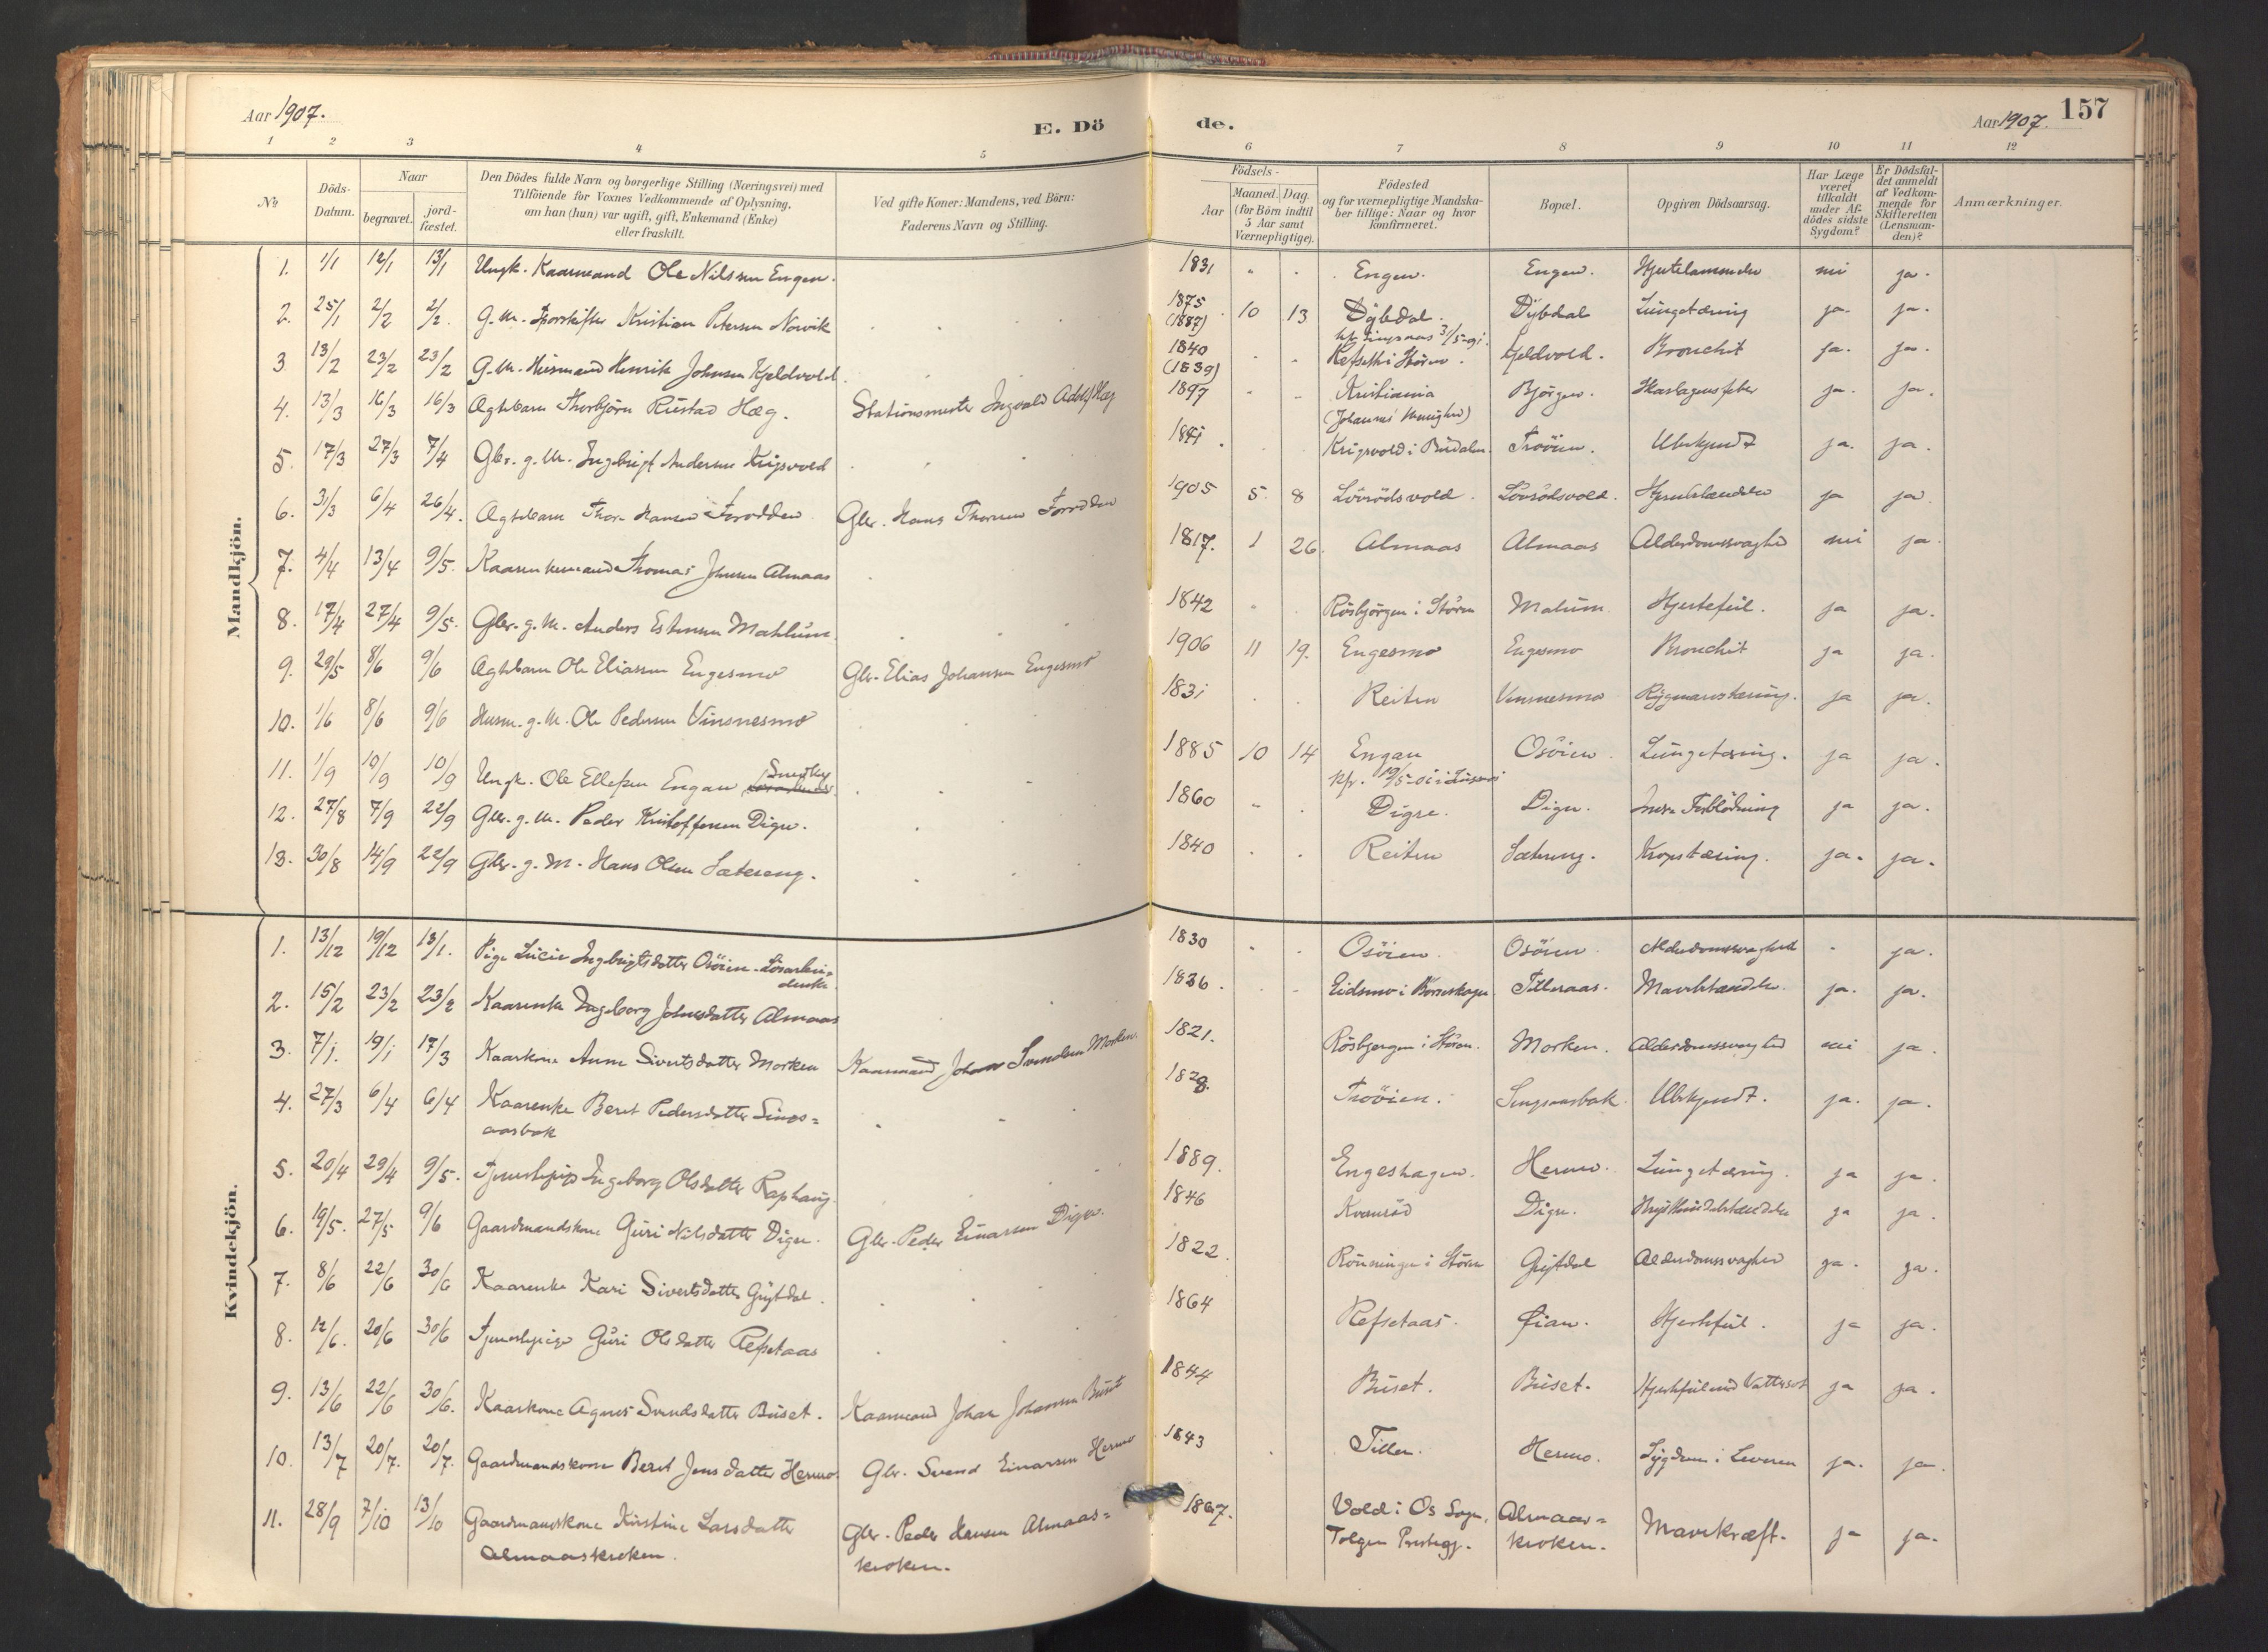 Aar 1907.
E. Dö de.
Aar 1907. 157
1 2 3 4 5 6 7 8 9 10 11 12
№
Döds-Datum.
Naar
begravet.
jord-fæstet.
Den Dödes fulde Navn og borgerlige Stilling (Næringsvei) med
Tilföiende for Voxnes Vedkommende af Oplysning,
om han (hun) var ugift, gift, Enkemand (Enke)
eller fraskilt.
Ved gifte Koner: Mandens, ved Börn:
Faderens Navn og Stilling.
Födsels-
Aar
Maaned. Dag.
(for Börn indtil
5 Aar samt
Værnepligtige).
Födested
og for værnepligtige Mandska-
ber tillige: Naar og hvor
konfirmeret.
Bopæl.
Opgiven Dödsaarsag.
Har Læge
været
tilkaldt
under Af-
dödes sidste
Sygdom?
Er Dödsfal-
det anmeldt
af Vedkom-
mende for
Skifteretten
(Lensman-
den)?
Anmærkninger.
Mandkjön.
1. 1/1 12/1 13/1 Ungk. Kaarmand Ole Nilssen Engen. 1831 Engen. Engen. nei ja.
2. 25/1 2/2 2/2. G. M. Kristian Petersen Norvik 1875 (1887) 10 13 Dybdal. Dybdal Lungetæring ja. ja.
3 13/2 23/2 23/2 G. M. Husmand Henrik Johnsen Kjeldvold 1840 (1839) Refseth i Stören. Kjeldvold. Bronchit ja. ja.
4. 13/3 16/3 16/3 Ægtebarn Thorbjörn Rustad Hæg. Stationsmester Ingvald Adolf Hæg 1897 Kristiania (Johannes Menighed) Björgen. Skarlagensfeber ja. ja.
5. 17/3 27/3 7/4 Gbr. g. M. Ingebrigt Andersen Krigsvold 1841 Krigsvold i Budalen. Tröien. Ubekjendt ja. ja.
6. 31/3 6/4 26/4. Ægtebarn Thor Hansen Forodden Gbr. Hans Thorsen Forodden 1905 5 8 Lövrödsvold. Lövrödsvold. ja ja.
7. 4/4 13/4 9/5. Kaarenkemand Thomas Johnsen Almaas 1817. 1 26. Almaas Almaas Alderdomssvaghed nei ja.
8. 17/4 27/4 9/5. Gbr. g. M. Anders Estensen Mahlum 1842 Rösbjörgen i Stören Malum Hjertefeil. ja ja.
9. 29/5 8/6 9/6 Ægtebarn Ole Eliassen Engesmo Gbr. Elias Johansen Engesmo 1906 11 19. Engesmo Engesmo Bronchit ja ja.
10. 1/6 8/6 9/6 Husm. g. M. Ole Pedersen Vinsnesmo 1831 Reiten Vinsnesmo Rygmarvstæring. ja ja.
11. 1/9 10/9 10/9 Ungk. Ole Ellefsen Engan 1885 10 14 Engan Osöien. Lungetæring. ja ja.
12. 27/8 7/9 22/9 Gbr. g. M. Peder Kristoffersen Digre. 1860 Digre. Digre. Indre Forblödning ja ja.
13. 30/8 14/9 22/9 Gbr. g. M. Hans Olsen Sætereng. 1840 Reiten Sætereng. Kropstæring. ja. ja.
Kvindekjön.
1. 13/12 19/12 13/1. Pige Lucie Ingebrigtsdatter Osöien. Lösarbei-
derske 1830 Osöien. Osöien. Alderdomssvaghed ja.
2. 15/2 23/2 23/2 Kaarenke Ingeborg Johnsdatter Almaas 1836. Eidsmo i Börseskogn Tilleraas. Mavebetændelse. ja. ja.
3. 7/1. 19/1 17/3 Kaarkone Anne Sivertsdatter Morken Kaarmand Johan Svendsen Morken. 1821. Rösbjergen i Stören. Morken. Alderdomssvaghed nei ja.
4. 27/3 6/4 6/4 Kaarenke Beret Pedersdatter Sings=
aasbak 1828. Tröien. Singsaasbak. Ubekjendt. ja. ja.
5. 20/4 29/4 9/5. Tjenestepige Ingeborg Olsdatter Raphaug. 1889. Engeshagen. Hermo. Lungetæring. ja ja.
6. 19/5. 27/5 9/6 Gaardmandskone Guri Nilsdatter Digre. Gbr. Peder Einarsen Digre. 1846 Kvamröd Digre. ja ja.
7. 8/6 22/6 30/6 Kaarenke Kari Sivertsdatter Grytdal. 1822. Rönningen i Stören Grytdal Alderdomssvaghed ja. ja.
8. 12/6. 20/6 30/6 Tjenestepige Guri Olsdatter Refsetaas 1864 Refsetaas. Øian. Hjertefeil. ja ja.
9. 13/6 22/6 30/6. Kaarkone Agnes Svendsdatter Buset. Kaarmand Johan Johansen Buset 1844 Buset. Buset. Hjertefeil med Vattersot ja ja.
10. 13/7 20/7. 20/7. Gaardmandskone Beret Jensdatter Hermo. Gbr. Svend Einarsen Hermo 1843 Tiller. Hermo. Sygdom i Leveren ja. ja.
11. 28/9 7/10 13/10 Gaardmandskone Kirstine Larsdatter
Almaaskroken. Gbr. Peder Hansen Almaas=
kroken. 1867. Vold i Os Sogn,
Tolgen Prestegj. Almaas=
kroken. Mavekræft. ja ja.